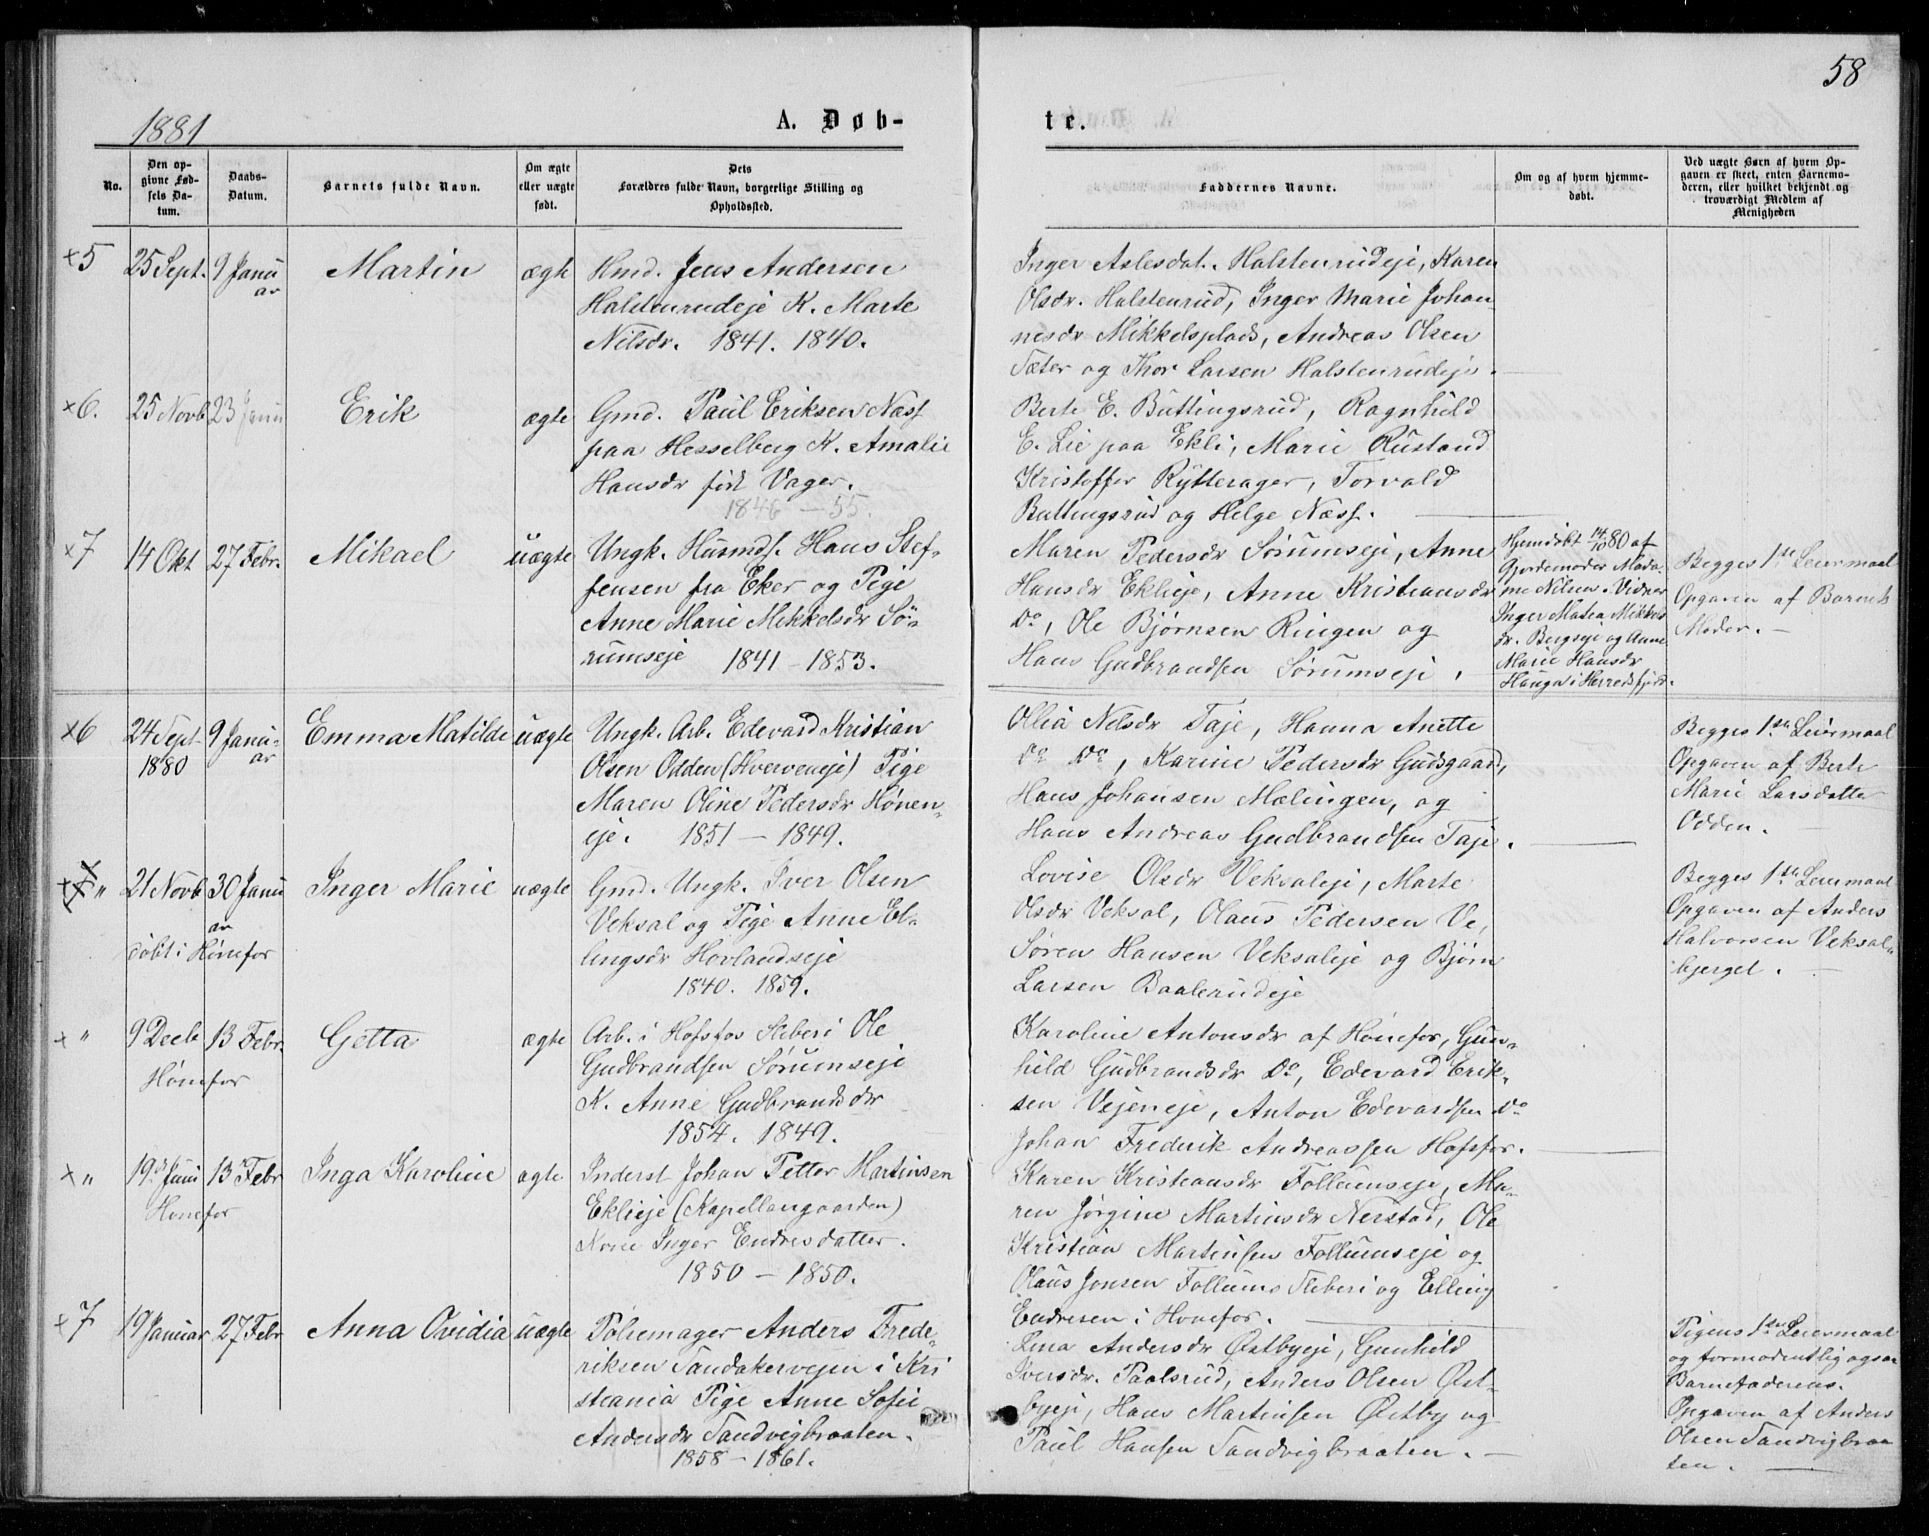 58
1881
A. Døb-
te.
No.
Den op-
givne Fød-
sels Da-
tum.
Daabs-
Datum.
Barnets fulde Navn.
Om ægte
eller uægte
født.
Dets
Forældres fulde Navn, borgerlige Stilling og
Opholdssted.
Faddernes Navne.
Om og af hvem hjemme-
døbt.
Ved uægte Børn af hvem Op-
gaven er skeet, enten Barnemo-
deren, eller hvilket bekjendt og
troværdigt Medlem af
Menigheden
×5
25 Sept.
9 Janu
ar
Martin
ægte
Hmd. Jens Andersen
Halstenrudeje K. Marte
Nilsdr. 1841. 1840.
Inger Aslesdat. Halstenrudeje, Karen
Olsdr. Halstenrud, Inger Marie Johan-
nesdr Mikkelsplads, Andreas Olsen
Sæter og Thor Larsen Halstenrudeje.
×6.
25 Novb
23 Janu
Erik
ægte
Gmd. Paul Eriksen Næss
paa Hesselberg K. Amalie
Hansdr født Vager.
1846 – 55.
Berte E. Buttingsrud, Ragnhild
E. Lie paa Ekli, Marie Rustand
Kristoffer Rytterager, Torvald
Buttingsrud og Helge Næss.
×7
14 Okt
27 Febr.
Mikael
uægte
Ungk. Husmds. Hans Stef-
fensen fra Eker og Pige
Anne Marie Mikkelsdr Sø-
rumseje 1841 – 1853.
Maren Pedersdr Sørumseje, Anne
Hansdr Eklieje, Anne Kristiansdr
Do, Ole Bjørnsen Ringen og
Hans Gudbrandsen Sørumseje.
Hjemdøbt 14/10 80 af
Gjordemoder Mada-
me Nilsen. Vidner
Inger Matea Mikkels
dr. Bergseje og Anne
Marie Hansdr
Hauga i Herredsfjerd.
Begges 1ste Leiermaal
Opgaven af Barnets
Moder.
×6
24 Sept.
1880
9 Janu-
ar
Emma Matilde
uægte
Ungk. Arb. Edevard Kristian
Olsen Odden (Hverveneje) Pige
Maren Oline Pedersdr Hønen-
eje. 1851 – 1849.
Ollia Nelsdr Taje, Hanna Anette
Do Do, Karine Pedersdr Gudsgaard,
Hans Johansen Mælingen, og
Hans Andreas Gudbrandsen Taje.
Begges 1ste Leiermaal
Opgaven af Berte
Marie Larsdatter
Odden.
× "
21 Novb
30 Janu
ar
døbt i Hønefos
Inger Marie
uægte
Gmd. Ungk. Iver Olsen
Veksal og Pige Anne El-
lingsdr Hovlandseje
1840. 1859.
Lovise Olsdr Veksaleje, Marte
Olsdr Veksal, Olaus Pedersen Ve,
Søren Hansen Veksaleje og Bjørn
Larsen Baalerudeje
Begges 1ste Leiermaal
Opgaven af Anders
Halvorsen Veksal-
bjerget.
× "
9 Decb
13 Febr.
Hønefos
Getta
ægte
Arb. i Hofsfos Sliberi Ole
Gudbrandsen Sørumseje
K. Anne Gudbrandsdr
1854. 1849.
Karoline Antonsdr af Hønefos, Gun-
hild Gudbrandsdr Do, Edevard Erik-
sen Vejeneje, Anton Edevardsen Do
Johan Frederik Andreassen Hofsfos.
× "
19de Juni
13 Febr
Hønefos
Inga Karoline
ægte
Inderst Johan Petter Martinsen
Eklieje (Kapellangaarden)
Kone Inger Endresdatter.
1850 – 1850.
Karen Kristiansdr Follumseje, Ma-
ren Jørgine Martinsdr Nerstad, Ole
Kristian Martinsen Follumseje og
Olaus Jonsen Follums Sliberi og Elling
Endresen i Hønefos.
×7
19 Januar
27 Febr
Anna Ovidia
uægte
Pølsemager Anders Frede-
riksen Sandakerveien i Kri
stiania Pige Anne Sofie
Andersdr Sandvigbraaten.
1858 – 1861.
Lina Andersdr Østbyeje, Gunhild
Iversdr. Paalsrud, Anders Olsen Øst-
byeje, Hans Martinsen Østby og
Paul Hansen Sandvigbraaten.
Pigens 1ste Leiermaal
og formodentlig ogsaa
Barnefaderens.
Opgaven af Anders
Olsen Sandvigbraa
ten.